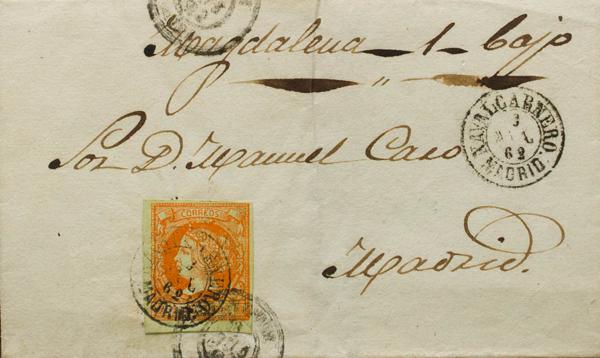 Magdalena - 1 - bajo
"
Sor D. Manuel Caso
NAVALCARNERO
3
62
MADRID
Madrid.
CORREOS
62
MADRID